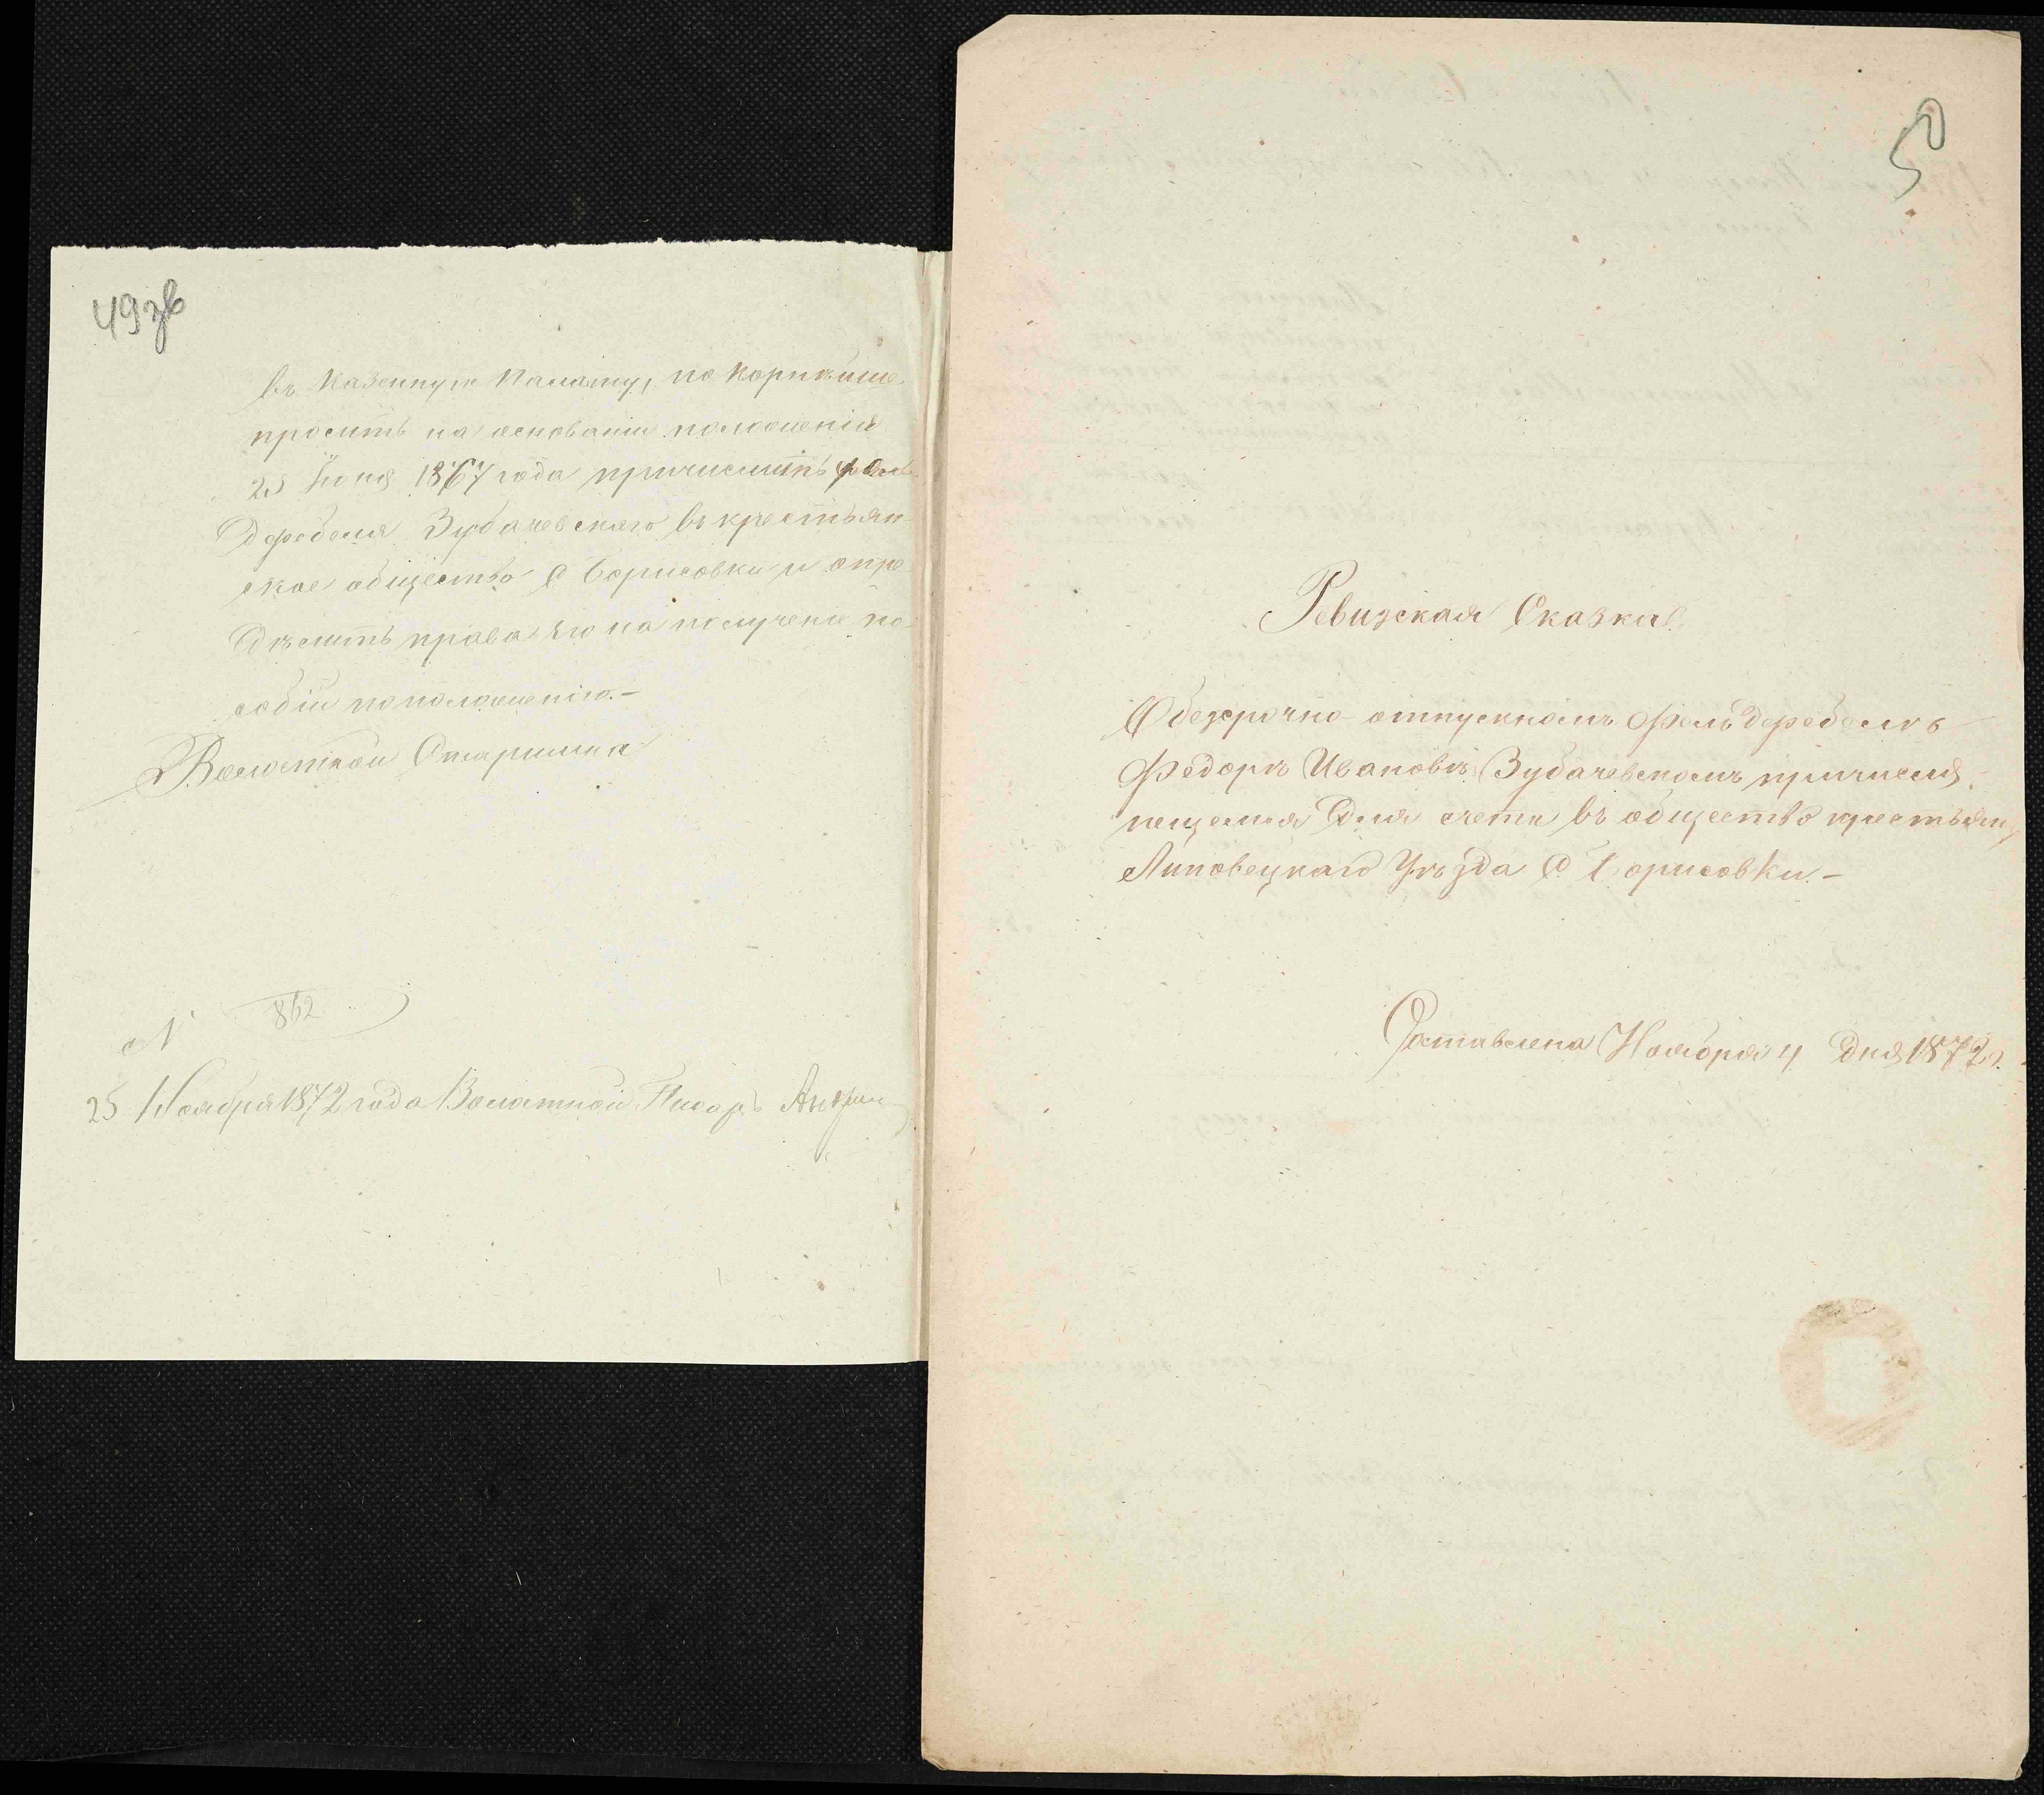 49 зв
въ Казенную Палату, по корнѣйше
просить на основаніи положенія
25 Іюня 1867 года причислить фель
дфебеля Зубачевскаго въ крестьян
ское общество С Борисовки и опре
дѣлить права его на полученіе по
собій по положенію.-
Волостной Старшина
N 862
25 Ноября 1872 года Волостной Писарь
50
Ревизская Сказка
О безсрочно отпускномъ Фельдфебелѣ
Федорѣ Ивановѣ Зубачевскомъ причисля
ющемся для счета въ общество крестьянъ
Липовецкаго Уѣзда С Борисовки.-
Составлена Ноября 4 дня 1872 г.